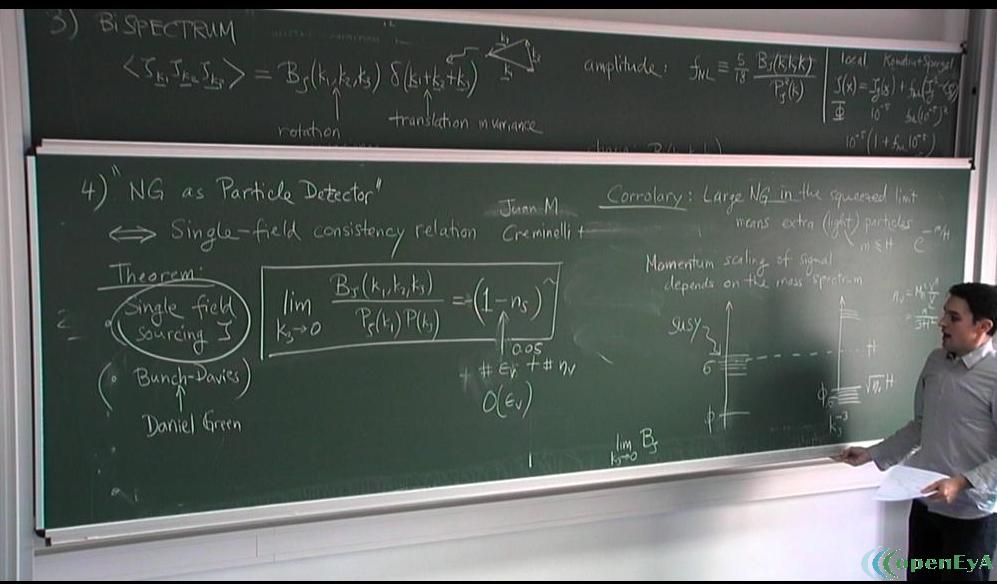 3) BiSPECTRUM
<ζ_k1 ζ_k2 ζ_k3> = B_ζ(k₁,k₂,k₃) δ(k₁+k₂+k₃)
rotation
translation invariance
amplitude: f_NL ≡ 5/18 B_ζ(k,k,k)/P_ζ²(k)
local Komatsu+Spergel
10⁻⁵ f_NL(10⁻⁵)²
10⁻⁵(1+f_NL 10⁻⁵)
4) "NG as Particle Detector"
⟺ Single-field consistency relation
Juan M
Creminelli +
Theorem:
Single field
sourcing ζ
(• Bunch-Davies)
Daniel Green
lim k₃→0 B_ζ(k₁,k₂,k₃)/P_ζ(k₁)P(k₃) = (1-n_s)
0.05
# ε_v + # η_v
O(ε_v)
Corrolary: Large NG in the squeezed limit
means extra (light) particles
m ≲ H e^{-m/H}
Momentum scaling of signal
depends on the mass-spectrum
SUSY
σ
φ
H
φ
σ
√η_v H
k₃⁻³
lim k₃→0 B_ζ
openEyA